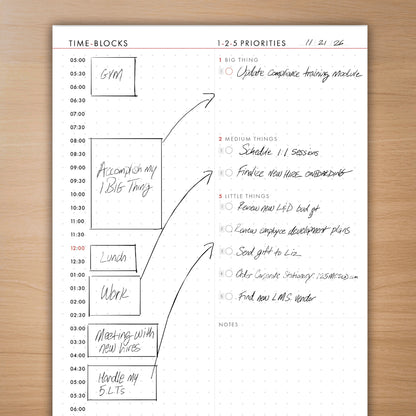 TIME-BLOCKS
1-2-5 PRIORITIES
11 21 26
05:00
05:30
06:00
06:30
07:00
07:30
08:00
08:30
09:00
09:30
10:00
10:30
11:00
11:30
12:00
12:30
01:00
01:30
02:00
02:30
03:00
03:30
04:00
04:30
05:00
05:30
06:00
Gym
Accomplish my
1 BIG Thing
Lunch
Work
Meeting with
new hires
Handle my
5 LTs
1 BIG THING
Update compliance training module
2 MEDIUM THINGS
Schedule 1:1 sessions
Finalize new hire onboarding
5 LITTLE THINGS
Review new L&D budget
Review employee development plans
Send gift to Liz
Order Corporate Stationery
Find new LMS vendor
NOTES